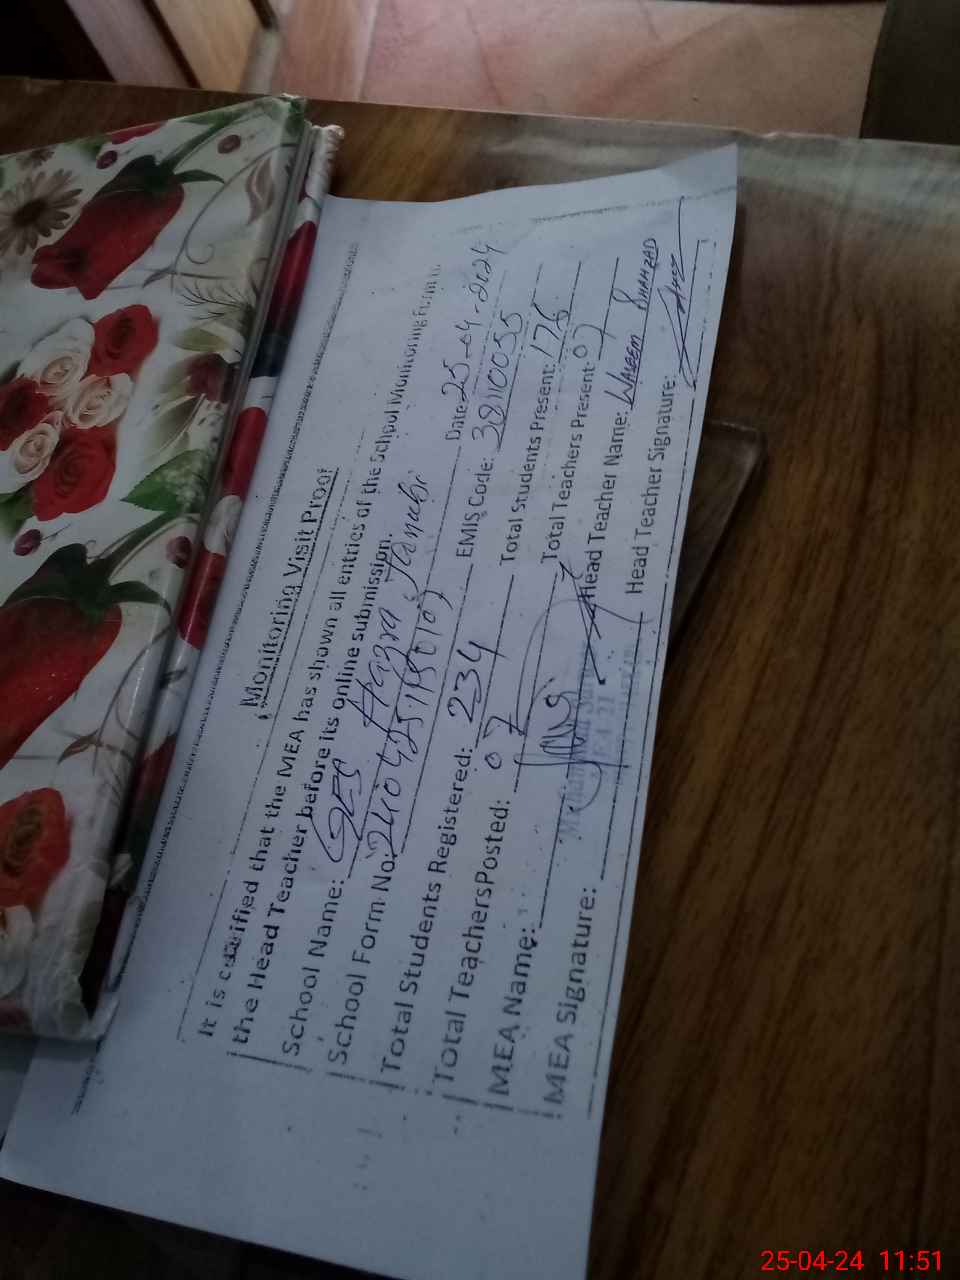 Monitoring Visit Proof
It is certified that the MEA has shown all entries of the School Monitoring Form to
the Head Teacher before its online submission.
School Name: GES Hazra Janubi Date: 25-04-2024
School Form No: EMIS Code: 38110055
Total Students Registered: 234 Total Students Present: 176
Total Teachers Posted: 07 Total Teachers Present 07
MEA Name: Head Teacher Name: WASEEM SHAHZAD
MEA Signature: Head Teacher Signature:
25-04-24 11:51